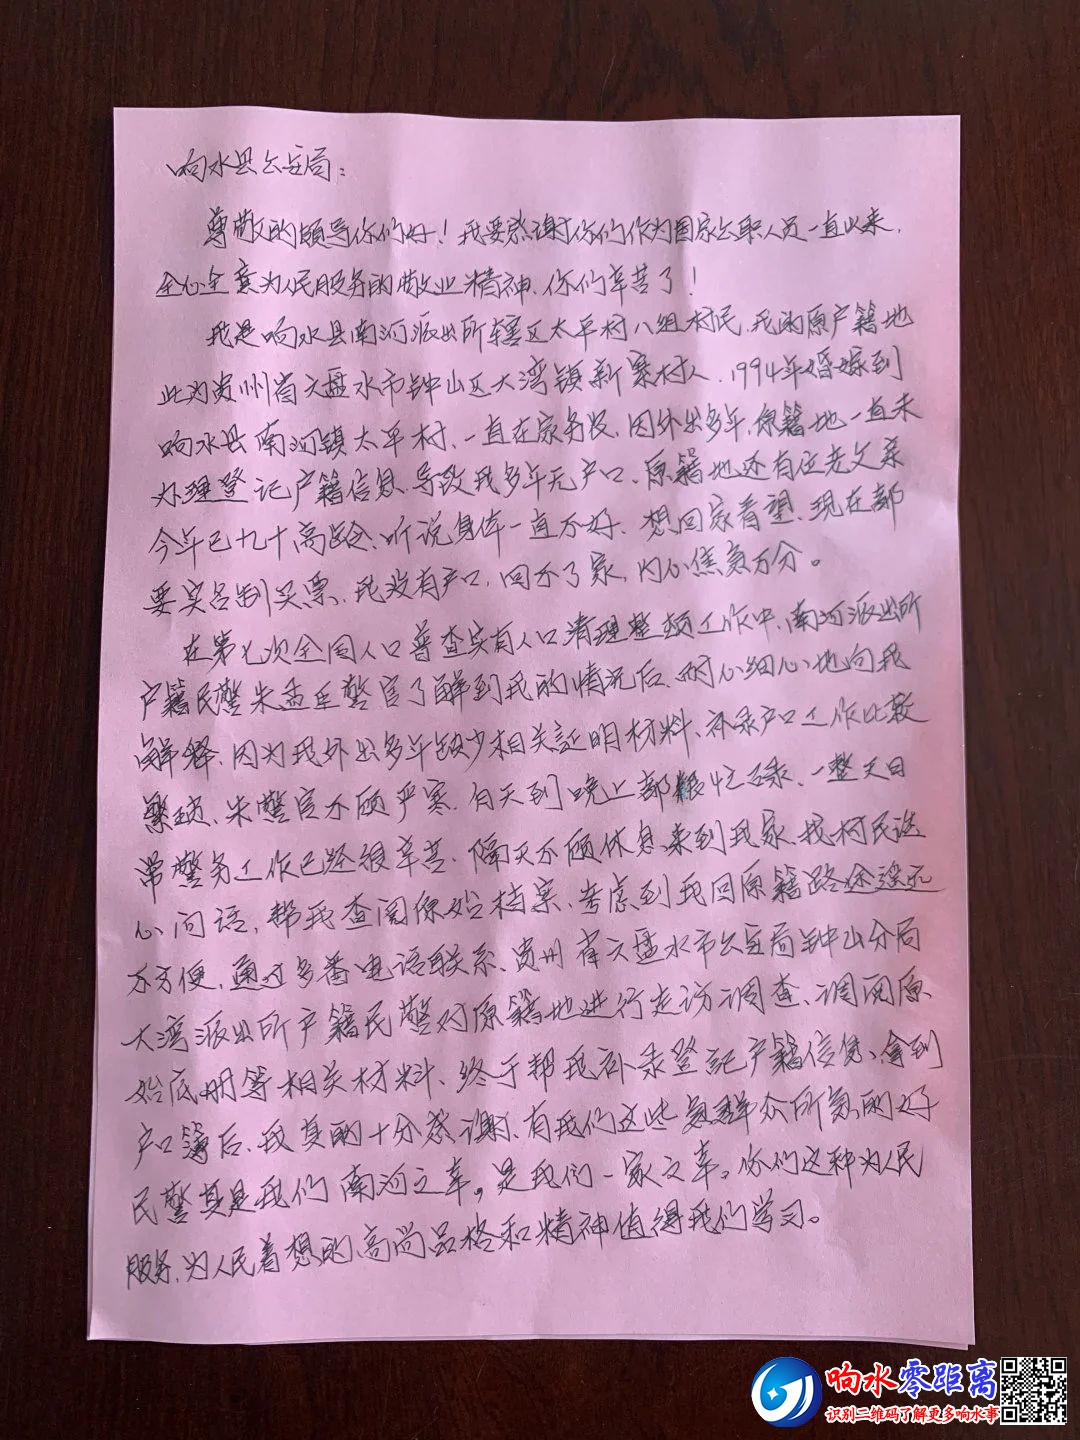 响水县公安局：
尊敬的领导你们好！我要感谢你们作为国家公职人员一直以来，
全心全意为人民服务的敬业精神、你们辛苦了！
我是响水县南河派出所辖区太平村八组村民、我的原户籍地
此为贵州省六盘水市钟山区大湾镇新寨村人、1994年婚嫁到
响水县南河镇太平村、一直在家务农、因外出多年、原籍地一直未
办理登记户籍信息、导致我多年无户口、原籍地还有位老父亲
今年已九十高龄、听说身体一直不好、想回家看望、现在都
要实名制买票、我没有户口，回不了家，内心焦急万分。
在第七次全国人口普查实有人口清理整顿工作中、南河派出所
户籍民警朱孟臣警官了解到我的情况后、耐心细心地向我
解释、因为我外出多年缺少相关証明材料、补录户口工作比较
繁琐、朱警官不顾严寒、白天到晚上都很忙碌、一整天日
常警务工作已经很辛苦、隔天不顾休息、来到我家、找村民谈
心问话，帮我查阅原始档案、考虑到我回原籍路途遥远
不方便，通过多番电话联系、贵州省六盘水市公安局钟山分局
大湾派出所户籍民警对原籍地进行走访调查、调阅原
始底册等相关材料、终于帮我补录登記户籍信息、拿到
户口簿后、我真的十分感谢、有我们这些急群众所急的好
民警真是我们南河之幸。是我们一家之幸。你们这种为人民
服务、为人民着想的高尚品格和精神值得我们学习。
响水零距离
识别二维码了解更多响水事